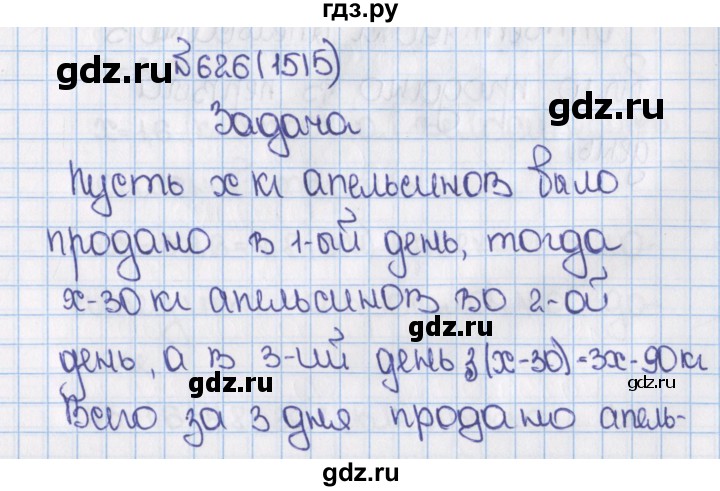 гдз.ру
№626(1515)
Задача
Пусть х кг апельсинов было
продано в 1-ый день, тогда
х-30 кг апельсинов во 2-ой
день, а в 3-ий день 3(х-30)=3х-90кг
Всего за 3 дня продано апель-
gdz.ru
gdz.ru
gdz.ru
gdz.ru
gdz.ru
gdz.ru
gdz.ru